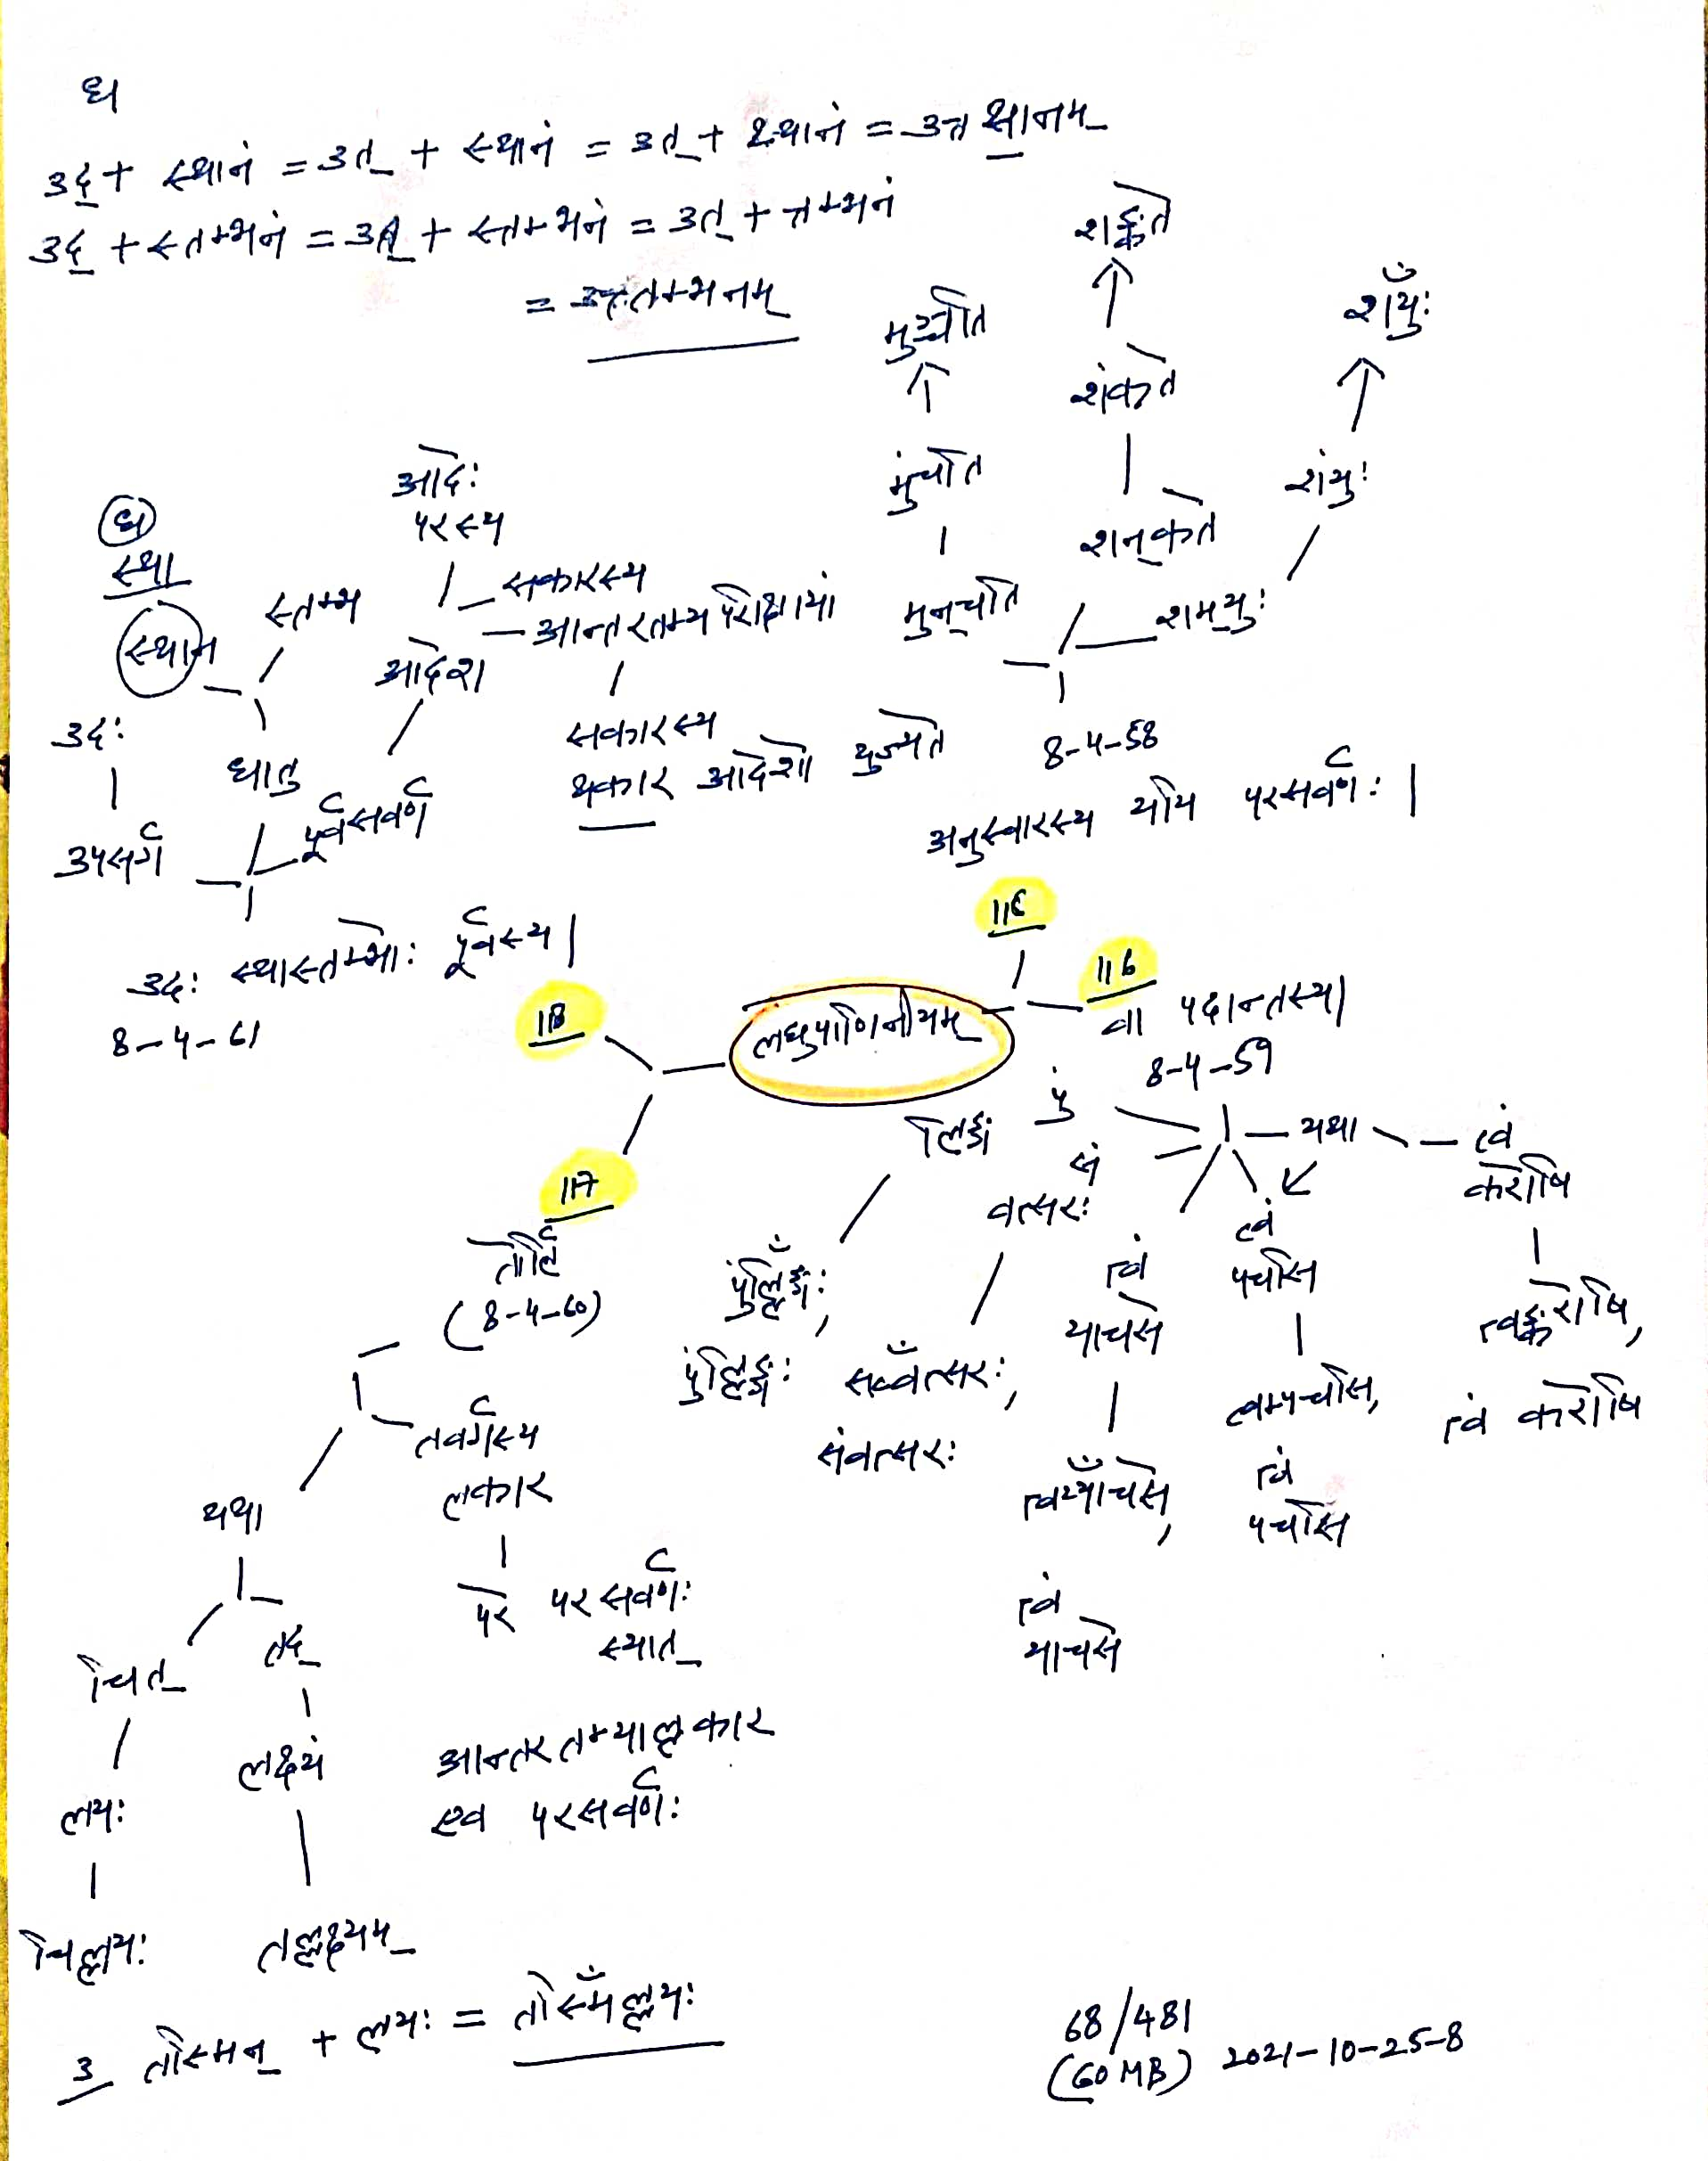 उद् + स्थानं = उत् + स्थानं = उत् + थ्थानं =
उद् + स्तम्भनं = उत् + स्तम्भनं = उत् + तम्भनं
शङ्कते
शय्ँयुः
शंकते
मुंचति
शंयुः
आदेः
परस्य
शन्कते
स्था
स्तम्भ
सकारस्य
आन्तरतम्य परीक्षायां
मुन्चति
शम्युः
स्थान
आदेश
उदः
धातु
सकारस्य
थकार आदेशो युज्यते
8-4-58
उपसर्ग
पूर्वसवर्ण
अनुस्वारस्य ययि परसवर्णः |
उदः स्थास्तम्भोः पूर्वस्य |
8-4-61
118
116
लघुपाणिनीयम्
वा पदान्तस्य |
8-4-59
117
तोर्लि
(8-4-60)
लिङ्गं
पुं
सं
वत्सरः
यथा
त्वं
करोषि
त्वं
पचसि
त्वं
याचसे
पुंलिङ्गः
सव्ँवत्सरः,
संवत्सरः
त्वङ्करोषि,
त्वं करोषि
त्वम्पचसि,
त्वं
पचसि
त्वय्ँयाचसे,
त्वं
याचसे
तवर्गस्य
लकार
परे परसवर्णः
स्यात्
यथा
चित्
तद्
लयः
लक्ष्यं
आन्तरतम्याल्लकार
एव परसवर्णः
चिल्लयः
तल्लक्ष्यम्
3 तस्मिन् + लयः = तस्मिँल्लयः
68/481
(60 MB) 2021-10-25-8